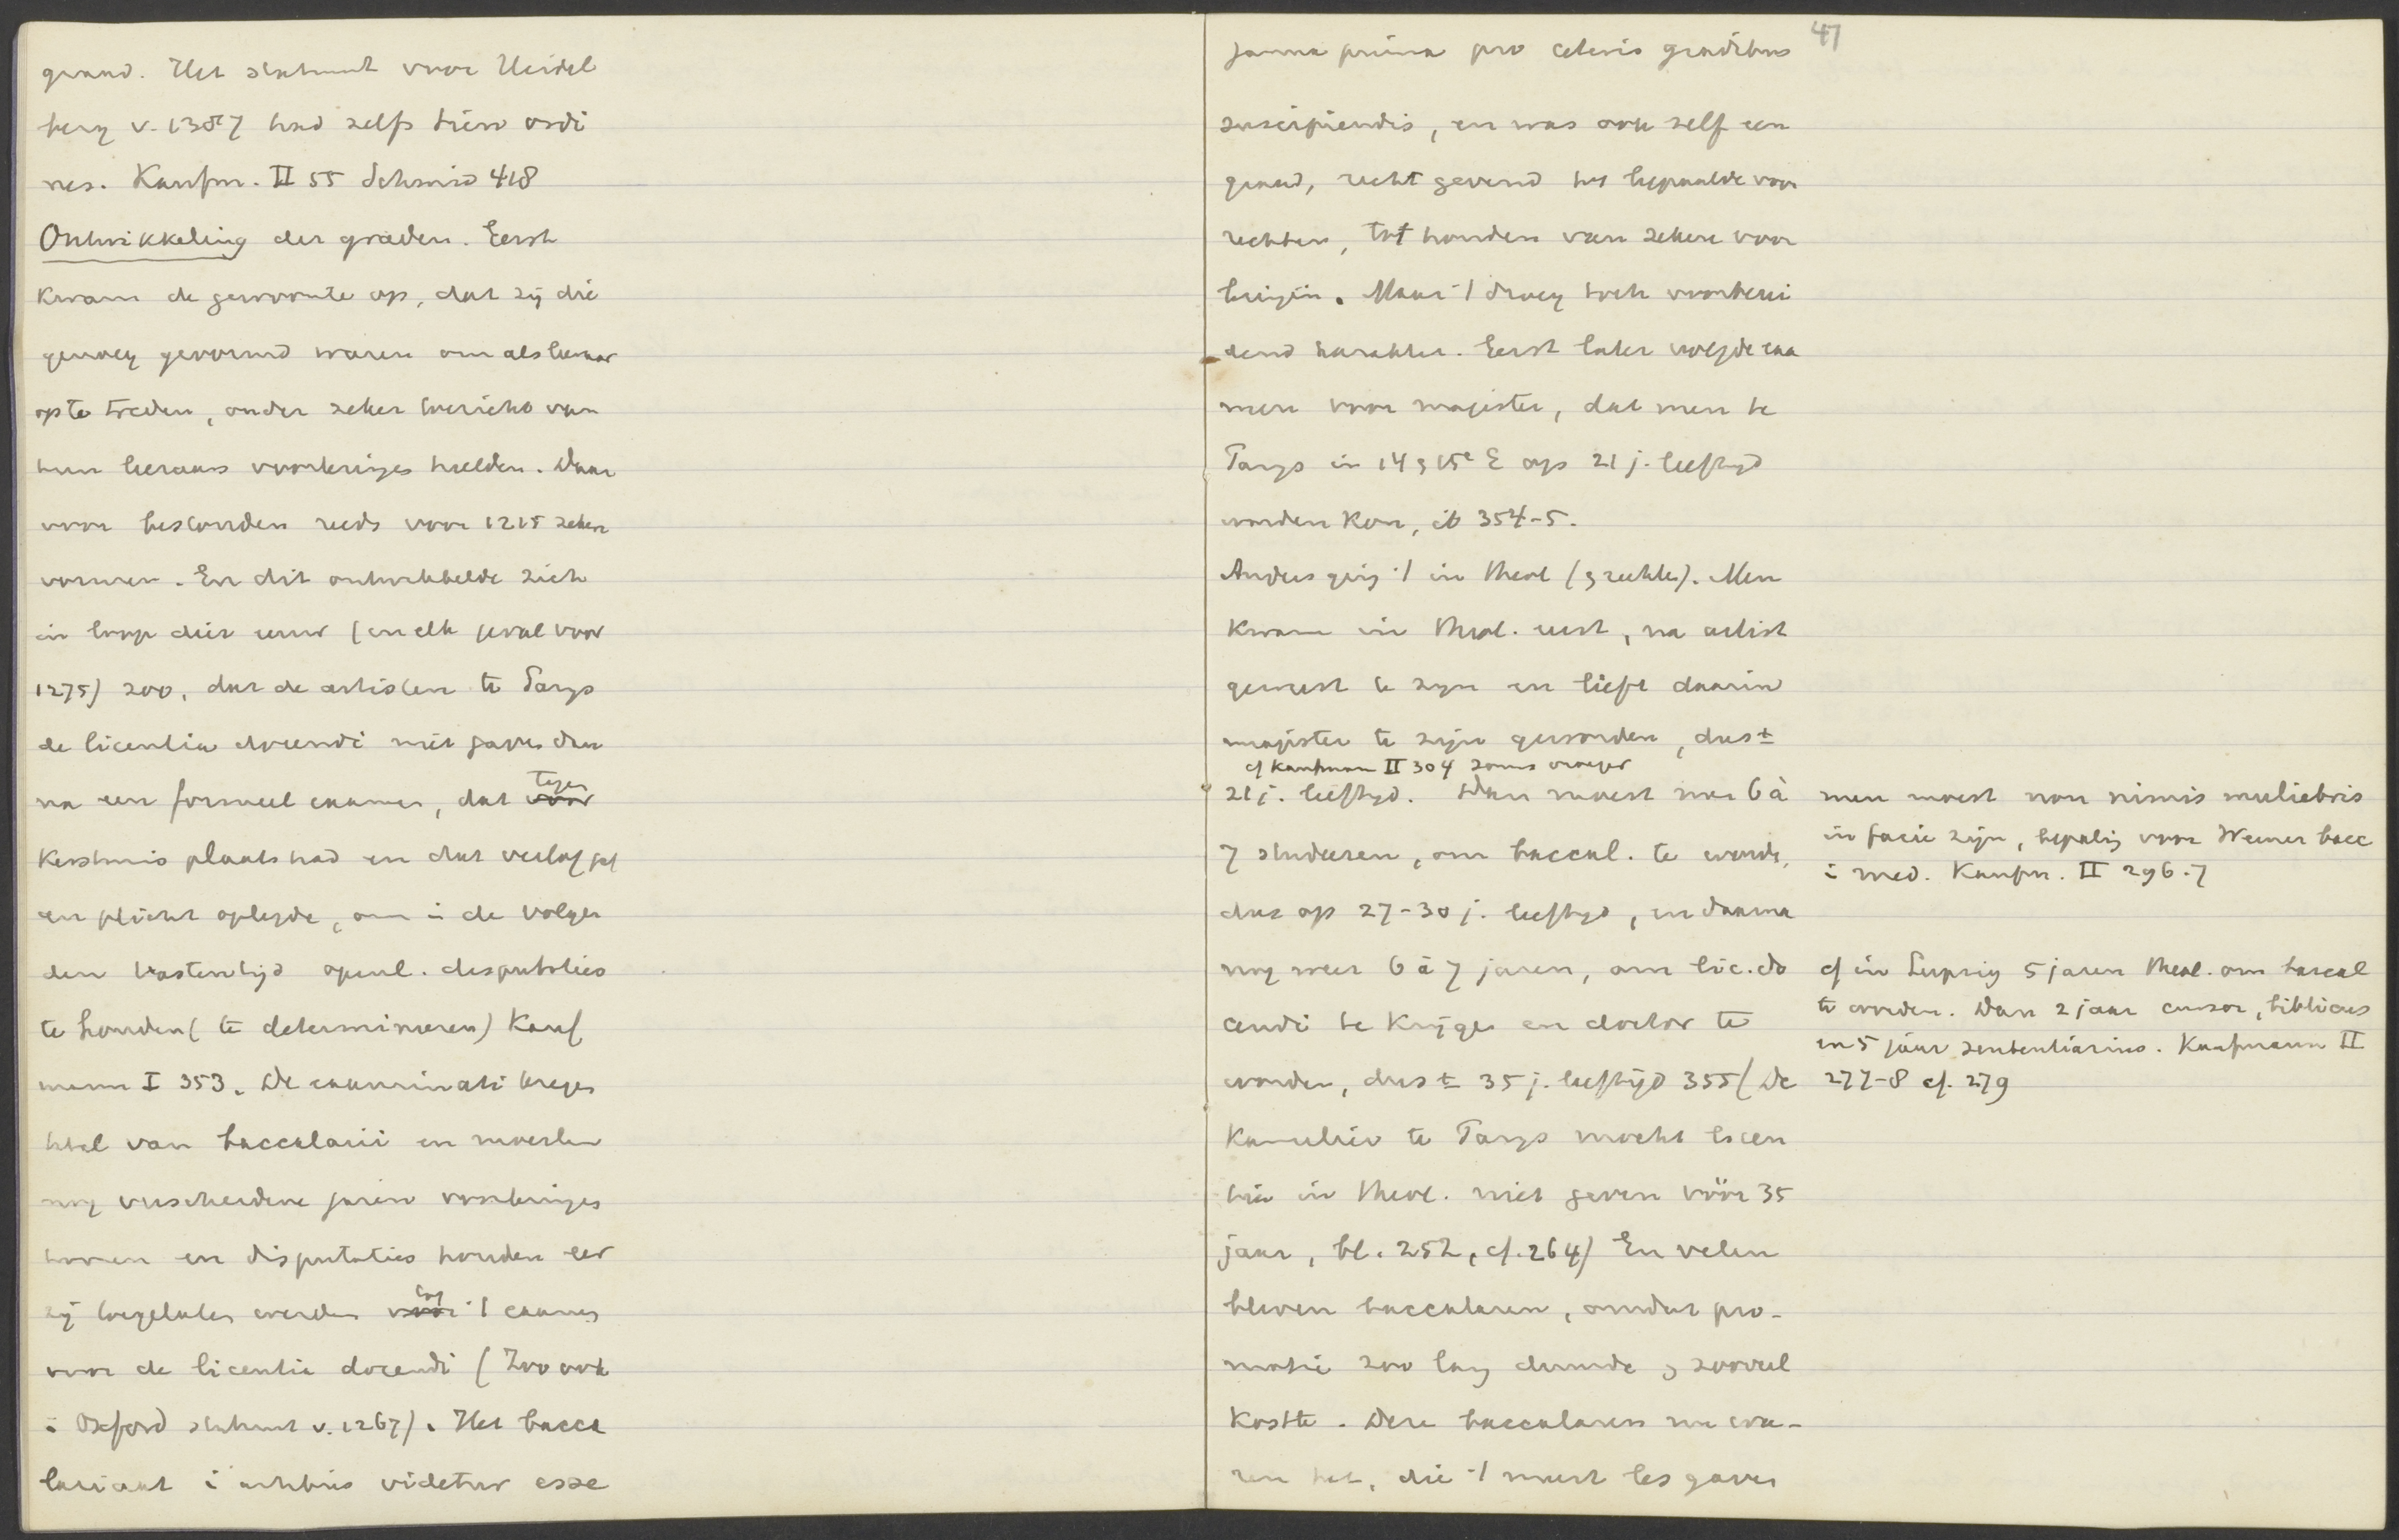 graad. Het statuut voor Heidel
berg v. 1387 had zelfs drieërlei ordi
nes. Kaufm. II 55 Schmid 418
Ontwikkeling der graden. Eerst
kwam de gewoonte op, dat zij die
genoeg gevormd waren om als leeraar
op te treden, onder zeker toezicht van
hun leeraars voorlezingen hielden. Daar
voor bestonden reeds voor 1215 zekere
vormen. En dit ontwikkelde zich
in loop dier eeuw (in elk geval voor
1275) zoo, dat de artisten te Parys
de licentia docendi niet gaven dan
na een formeel examen, dat voor tegen
Kerstmis plaats had en dat verlof gaf
en plicht oplegde, om i de volgen
den vastentijd openl. disputaties
te houden (te determineren) Kauf
mann I 353. De examinati kregen
titel van baccalarii en moesten
nog verscheidene jaren voorlezingen
hooren en disputaties houden eer
zij toegelaten werden voor tot 't examen
voor de licentia docendi (Zoo ook
i Oxford statuut v. 1267). Het bacca
lariaat i artibus videtur esse
47
janua prima pro ceteris gradibus
suscipiendis, en was ook zelf een
graad, recht gevend tot bepaalde voor
rechten, tot houden van zekere voor
lezingen. Maar 't droeg toch voorberei
dend karakter. Eerst later volgde exa
men voor magister, dat men te
Parys in 14 & 15e E op 21 j. leeftyd
worden kon, ib 354-5.
Anders ging 't in Theol (& rechten). Men
kwam in Theol. eerst, na artist
geweest te zyn en liefst daarin
magister te zijn geworden, dus ±
cf Kaufmann II 304 soms vroeger
21 j. leeftyd. Dan moest men 6 à
7 studeeren, om baccal. te worden,
dus op 27-30 j. leeftyd, en daarna
nog weer 6 à 7 jaren, om lic. do
cendi te krijgen en doctor te
worden, dus ± 35 j. leeftijd 355 (De
Kanselier te Parys mocht licen
tia in Theol. niet geven vóór 35
jaar, bl. 252, cf. 264) En velen
bleven baccalaren, omdat pro-
motie zoo lang duurde & zooveel
kostte. Deze baccalaren nu wa-
ren het, die 't meest les gaven
men moest non nimis muliebris
in facie zijn, bepaling voor Weener bacc
i med. Kaufm. II 296-7
cf in Leipzig 5 jaren theol. om baccal
te worden. Dan 2 jaar cursor, biblicus
en 5 jaar sententiarius. Kaufmann II
277-8 cf. 279